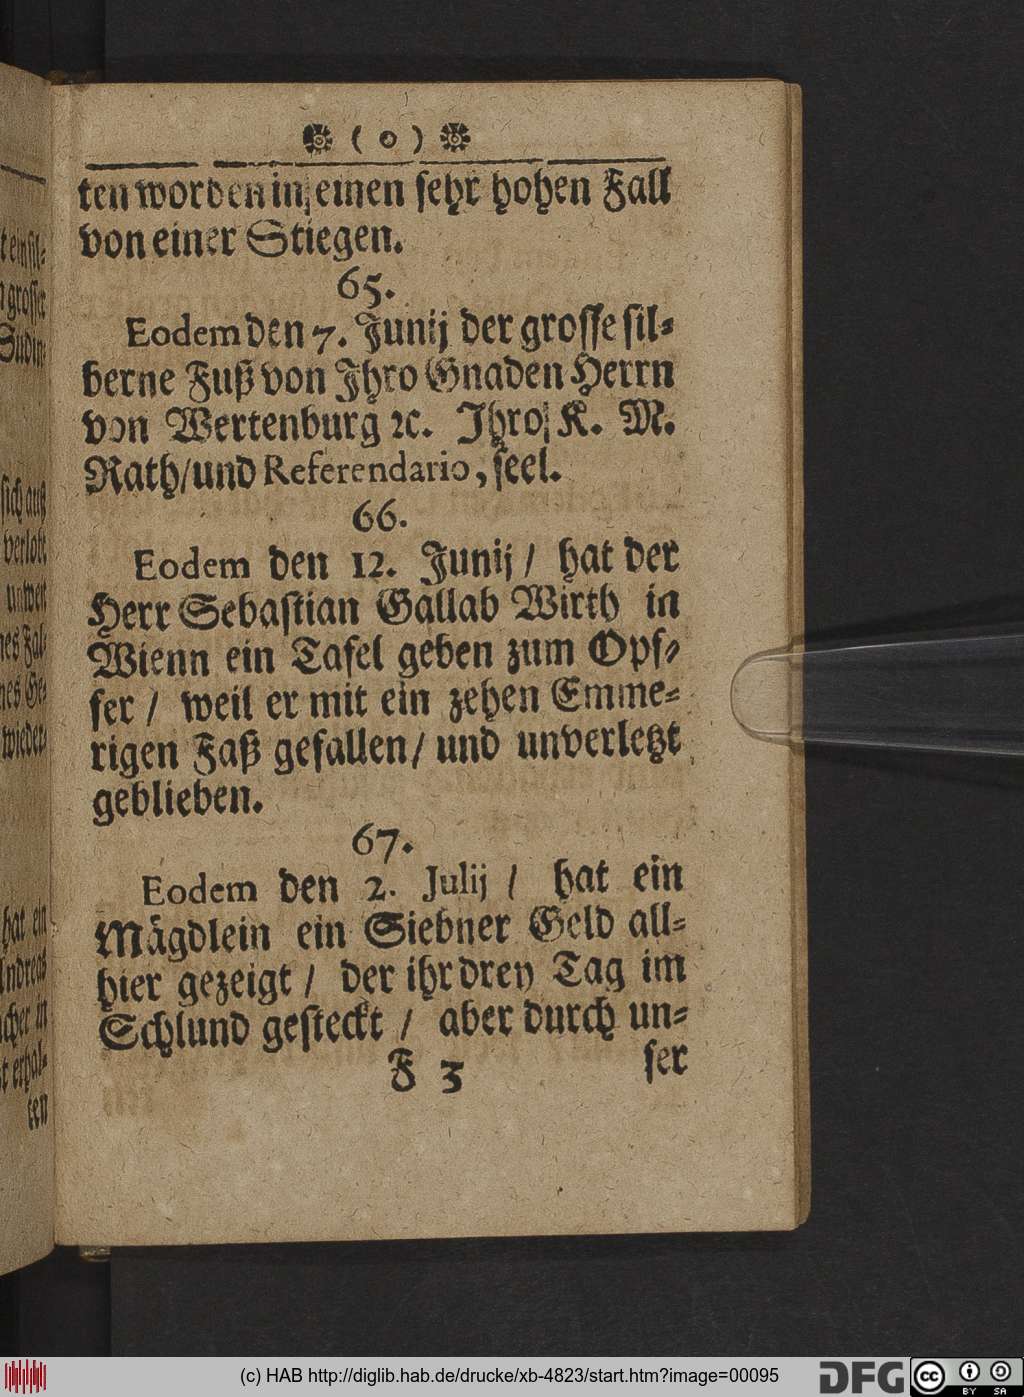 ❁ ( o ) ❁
ten worden in einen sehr hohen Fall
von einer Stiegen.
65.
Eodem den 7. Junij der grosse sil-
berne Fuß von Ihro Gnaden Herrn
von Wertenburg ꝛc. Ihro K. M.
Rath/und Referendario, seel.
66.
Eodem den 12. Junij / hat der
Herr Sebastian Gallab Wirth in
Wienn ein Tafel geben zum Opf-
fer / weil er mit ein zehen Emme-
rigen Faß gefallen / und unverletzt
geblieben.
67.
Eodem den 2. Julij / hat ein
Mägdlein ein Siebner Geld all-
hier gezeigt / der ihr drey Tag im
Schlund gesteckt / aber durch un-
F 3 ser
(c) HAB http://diglib.hab.de/drucke/xb-4823/start.htm?image=00095
DFG
cc BY SA